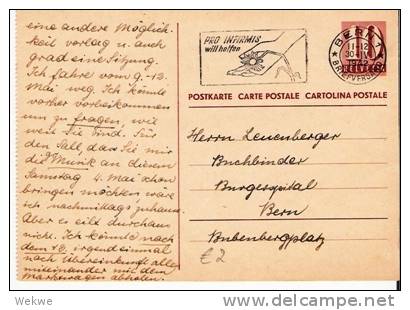 eine andere Möglich-
keit vorlag u. auch
grad eine Sitzung.
Ich fahre vom 9.-13.
Mai weg. Ich könnte
vorher vorbeikommen
um zu fragen, wie
weit Sie sind. Für
den Fall, dass Sie mir
die Musik an diesem
Samstag 4. Mai schon
bringen möchten wäre
ich nachmittags zuhause.
Aber es eilt durchaus
nicht. Ich könnte nach
dem 13. irgend einmal
nach Übereinkunft alles
miteinander mit dem
Marktwagen abholen.
PRO INFIRMIS
will helfen
BERN 1
11-12
30.IV.
BRIEFVERSAND
HELVETIA
POSTKARTE CARTE POSTALE CARTOLINA POSTALE
Herrn Leuenberger
Buchbinder
Burgerspital
Bern
Bubenbergplatz
€ 2
Wekwe
http://www.delcampe.net